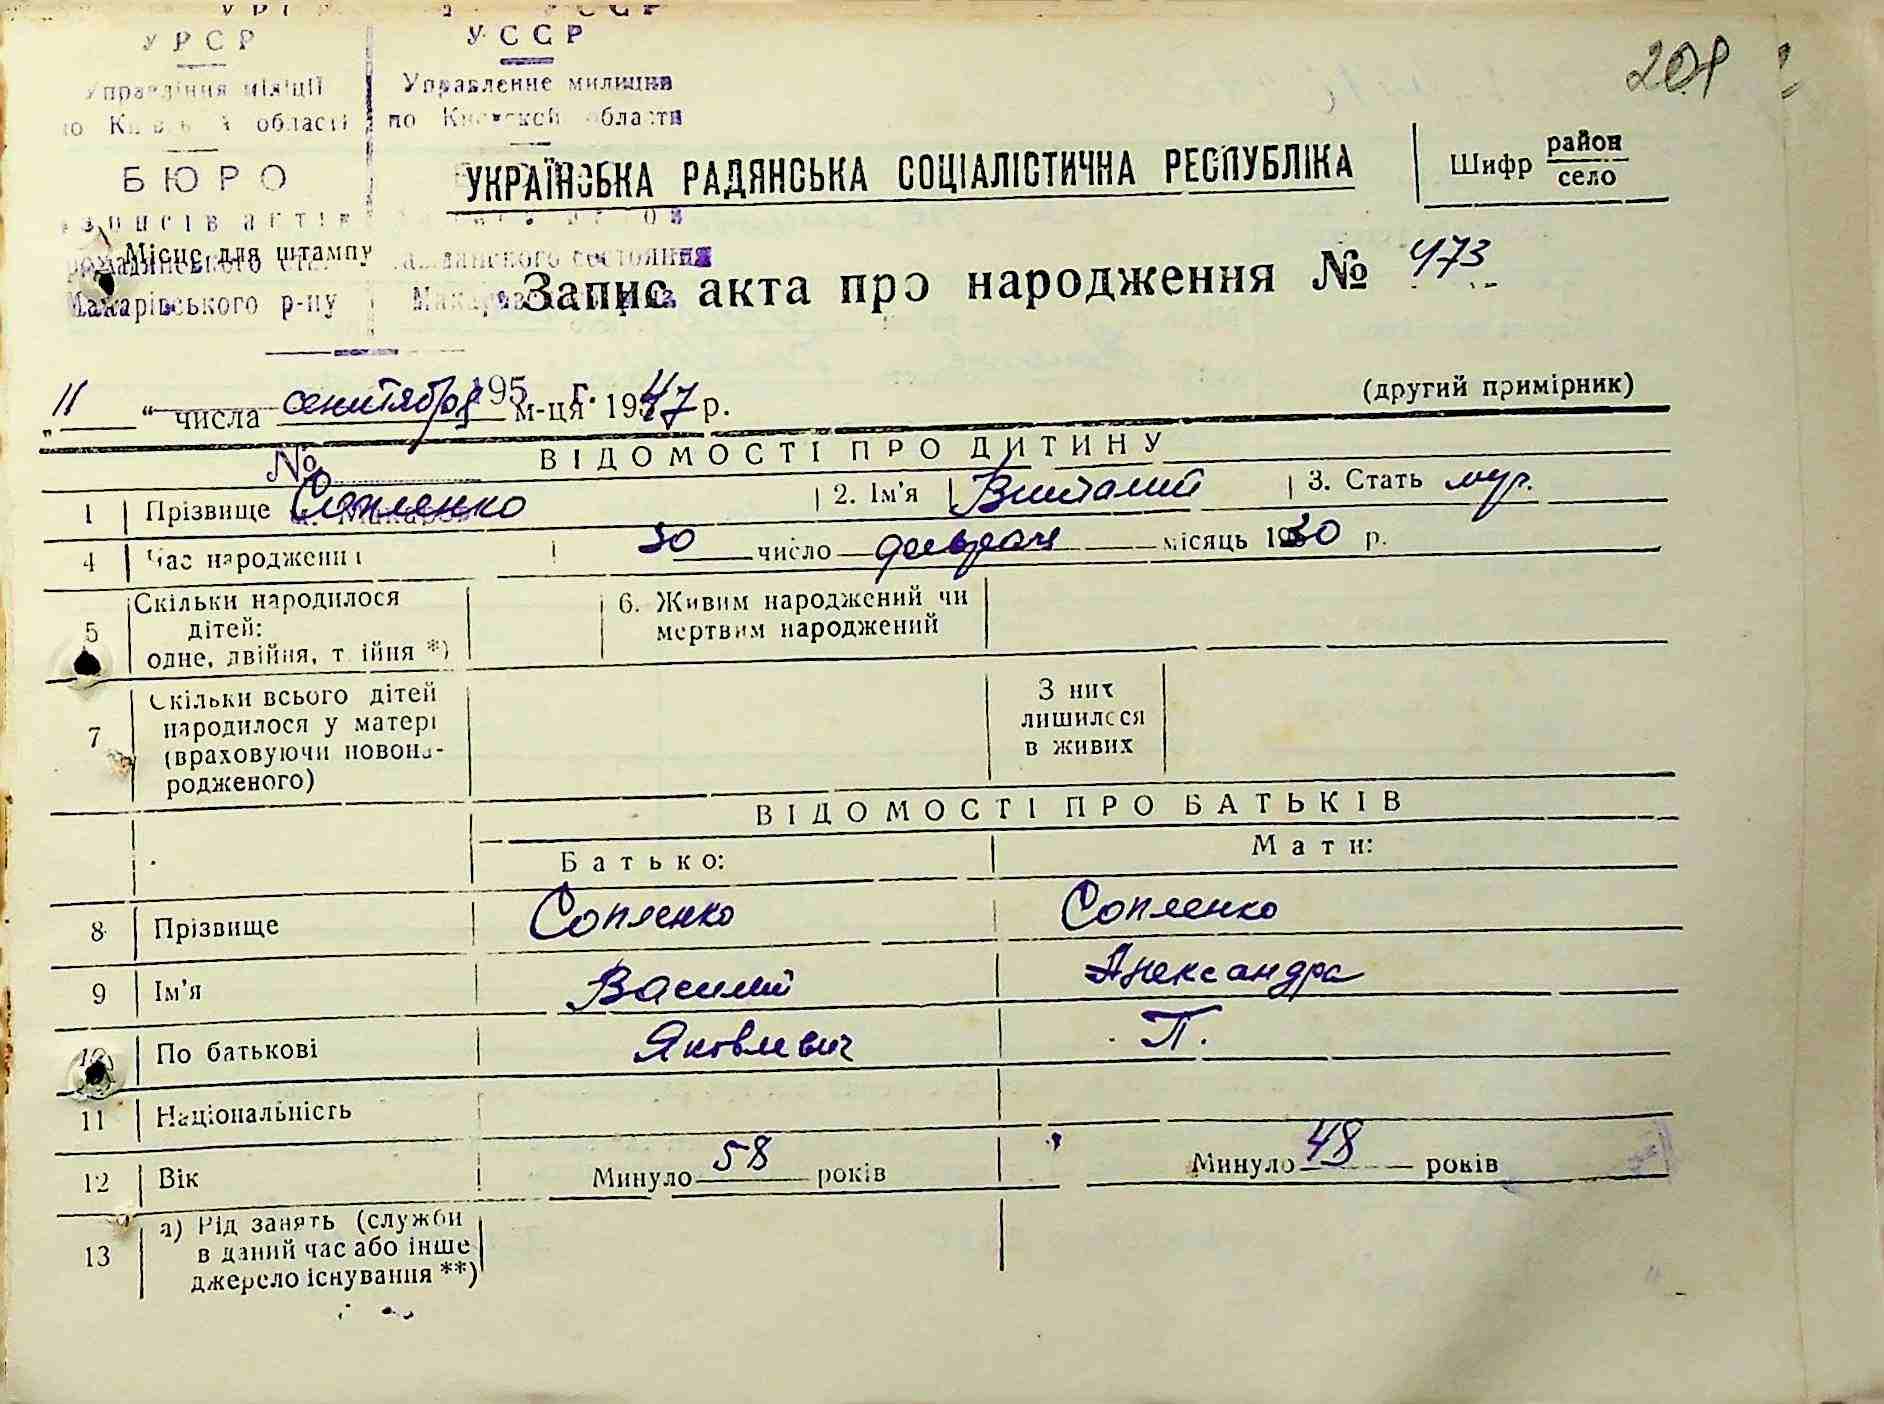 УРСР УССР
Управління міліції Управление милиции
по Київській області по Киевской области
БЮРО
УКРАЇНСЬКА РАДЯНСЬКА СОЦІАЛІСТИЧНА РЕСПУБЛІКА
Шифр район
село
209
записів актів
Місце для штампу
громадянського гражданского состояния
Макарівського р-ну
Запис акта про народження № 473
„11“ числа сентября м-ця 1947 р.
195 г.
(другий примірник)
ВІДОМОСТІ ПРО ДИТИНУ
№
1 Прізвище Сопленко 2. Ім'я Виталий 3. Стать муж.
м. Макаров
4 Час народження 30 число февраля місяць 1930 р.
5 Скільки народилося дітей: одне, двійня, трійня *) 6. Живим народжений чи мертвим народжений
7 Скільки всього дітей народилося у матері (враховуючи новонародженого) З них лишилося в живих
ВІДОМОСТІ ПРО БАТЬКІВ
Батько: Мати:
8 Прізвище Сопленко Сопленко
9 Ім'я Василий Александра
10 По батькові Яковлевич П.
11 Національність
12 Вік Минуло 58 років Минуло 48 років
13 а) Рід занять (служби в даний час або інше джерело існування **)